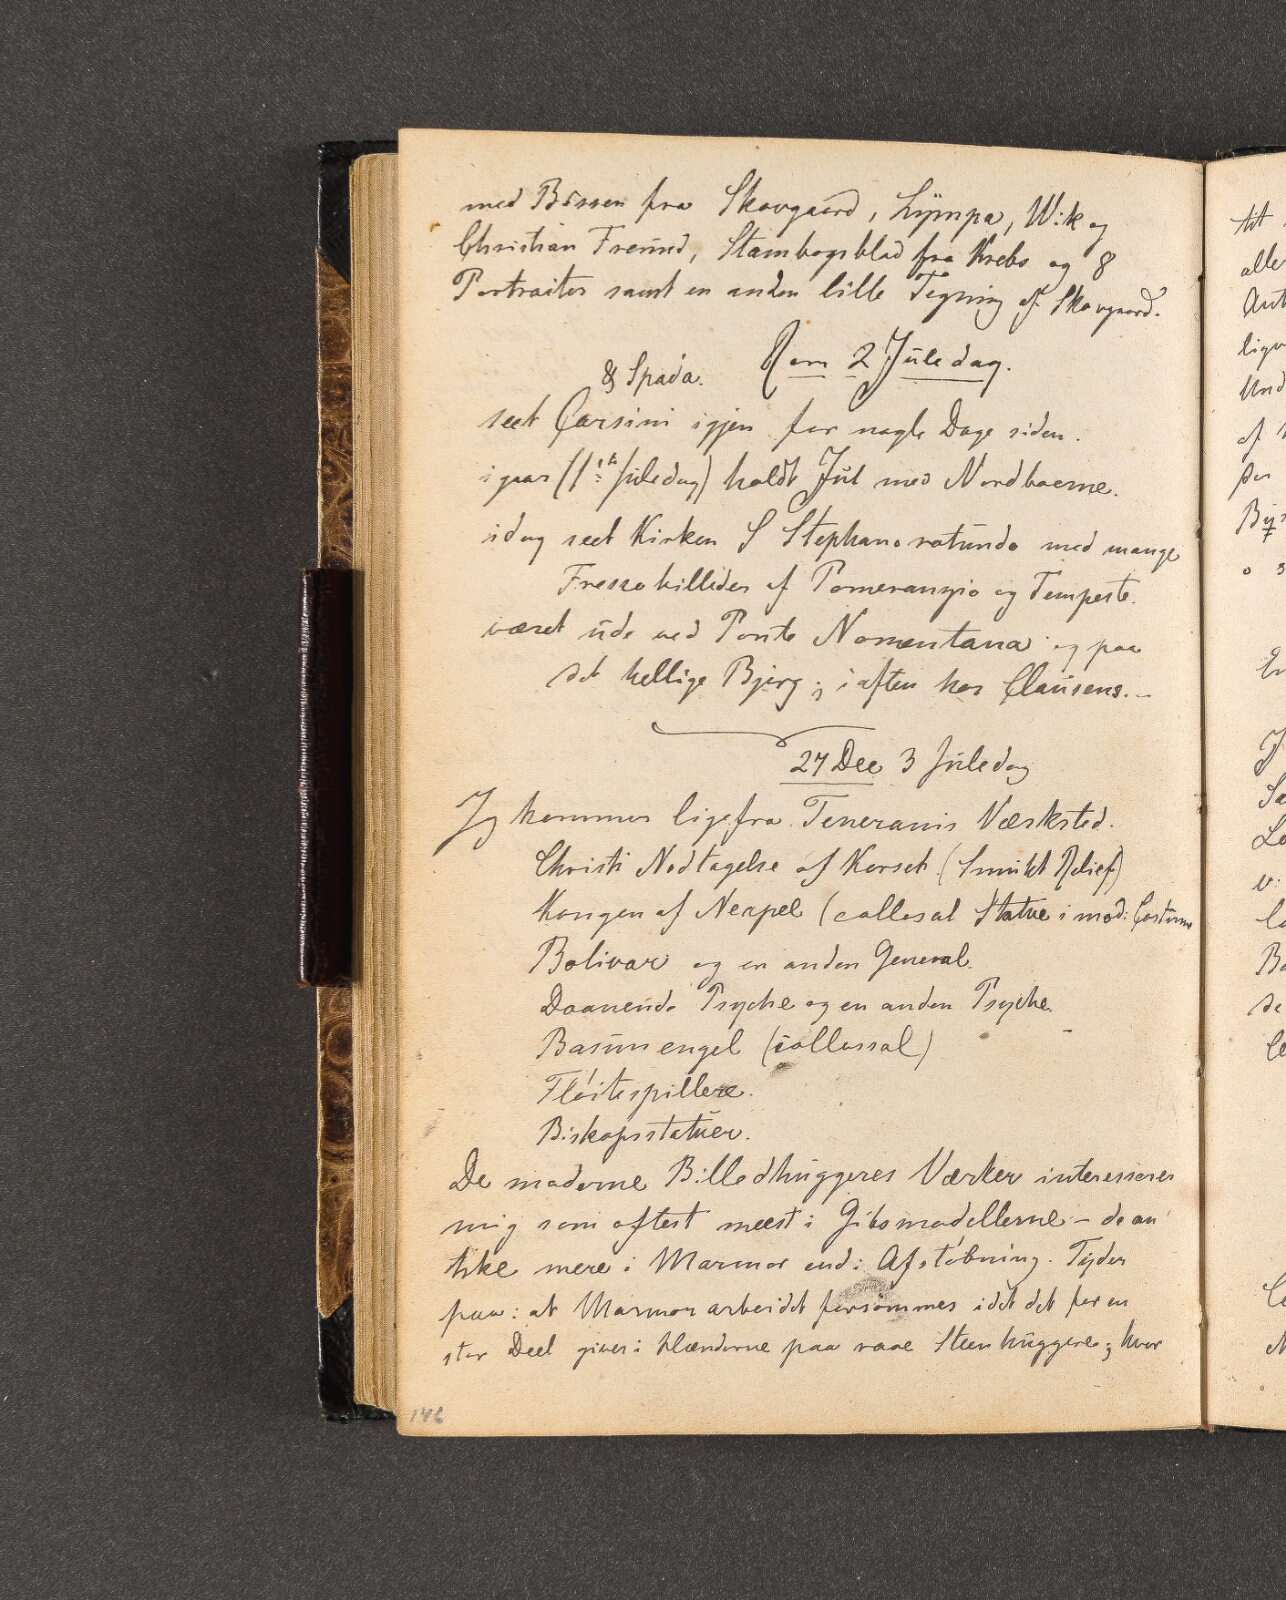 med Bissen fra Skovgaard, Lÿmpa, W:k og
Christian Freund, Stambogsblad fra Krebs og 8
Portraiter samt en anden lille Tegning af Skovgaard.
Rom 2 Juledag.
& Spada.
seet Corsini igjen for nogle Dage siden.
igaar (1ste Juledag) holdt Jul med Nordboerne.
idag seet Kirken S Stephano rotundo med mange
Fresko billeder af Pomerangio og Tempeste.
været ude ved Ponte Nomentana og paa
det hellige Bjerg; iaften hos Clausens. –
27 Dec 3 Juledag
Jg kommer lige fra Teneranis Værksted.
Christi Nedtagelse af Korset. (Smukt Relief)
Kongen af Neapel (collosal Statue i mod: Costume
Bolivar og en anden General.
Daanende Psyche og en anden Psyche.
Basun engel (collossal)
Fløitespillere.
Biskopsstatuer.
De moderne Billedhuggeres Værker interesserer
mig som oftest meest i Gibsmodellerne – de an
tike mere i Marmor end i Afstøbning. Tyder
paa: at Marmorarbeidet forsømmes idet det for en
stor Deel gives i Hænderne paa raae Steenhuggere; hvor
146